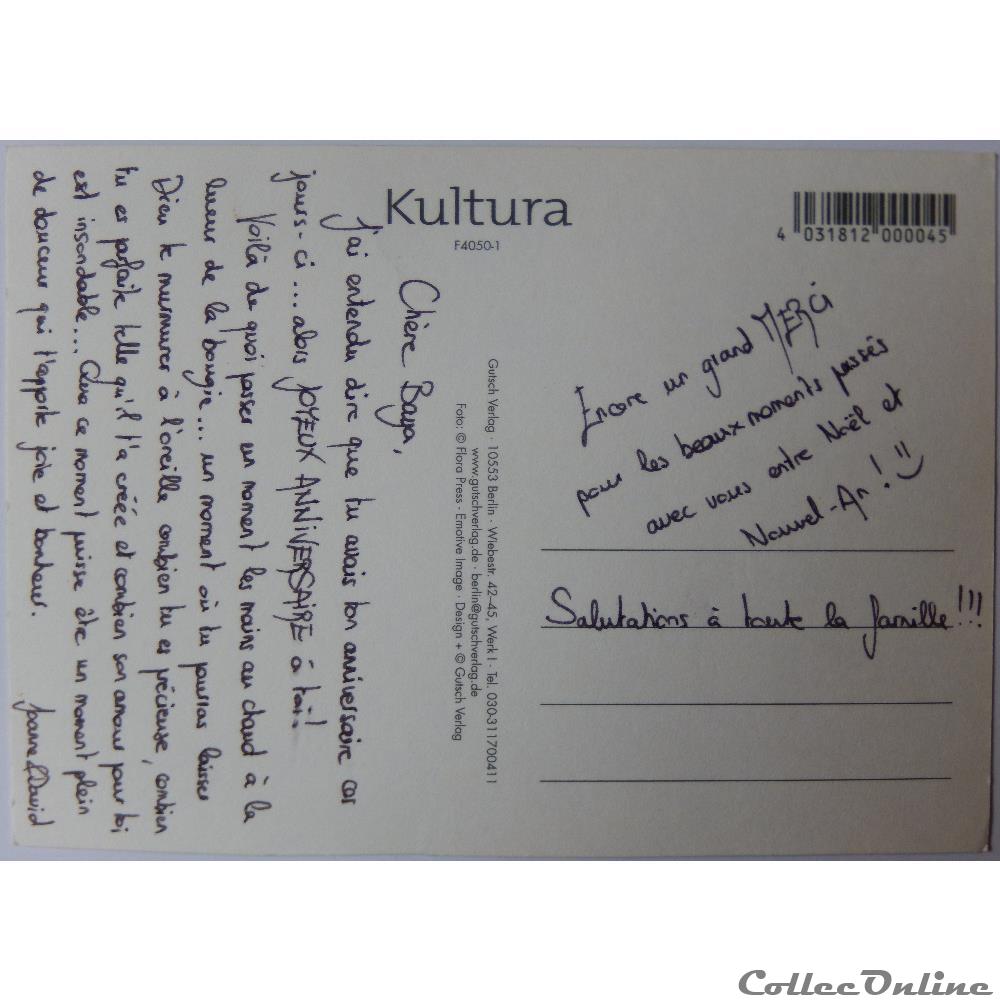 Kultura
F4050-1
4 031812 000045
Chère Baya,
J'ai entendu dire que tu avais ton anniversaire ces
jours-ci... alors JOYEUX ANNIVERSAIRE à toi!
Voilà de quoi passer un moment les mains au chaud à la
lueur de la bougie... un moment où tu pourras laisser
Dieu te murmurer à l'oreille combien tu es précieuse, combien
tu es parfaite telle qu'il t'a créée et combien son amour pour toi
est insondable... Que ce moment puisse être un moment plein
de douceur qui t'apporte joie et bonheur.
Joanne & David
Gutsch Verlag · 10553 Berlin · Wiebestr. 42–45, Werk I · Tel. 030-311700411
www.gutschverlag.de · berlin@gutschverlag.de
Foto: © Flora Press · Emotive Image · Design + © Gutsch Verlag
Encore un grand MERCI
pour les beaux moments passés
avec vous entre Noël et
Nouvel-An! =)
Salutations à toute la famille!!!
CollecOnline